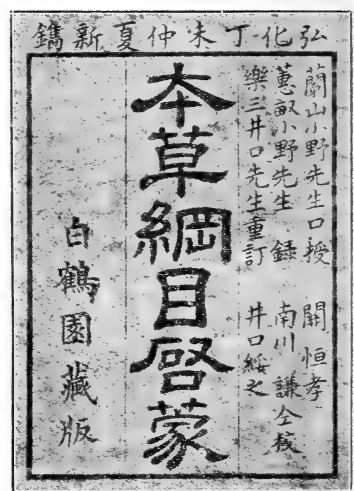 弘化丁未仲夏新鐫
蘭山小野先生口授
蕙畝小野先生錄
樂三井口先生重訂
關恒孝
南川謙仝校
井口綏之
本草綱目啓蒙
白鶴園藏版